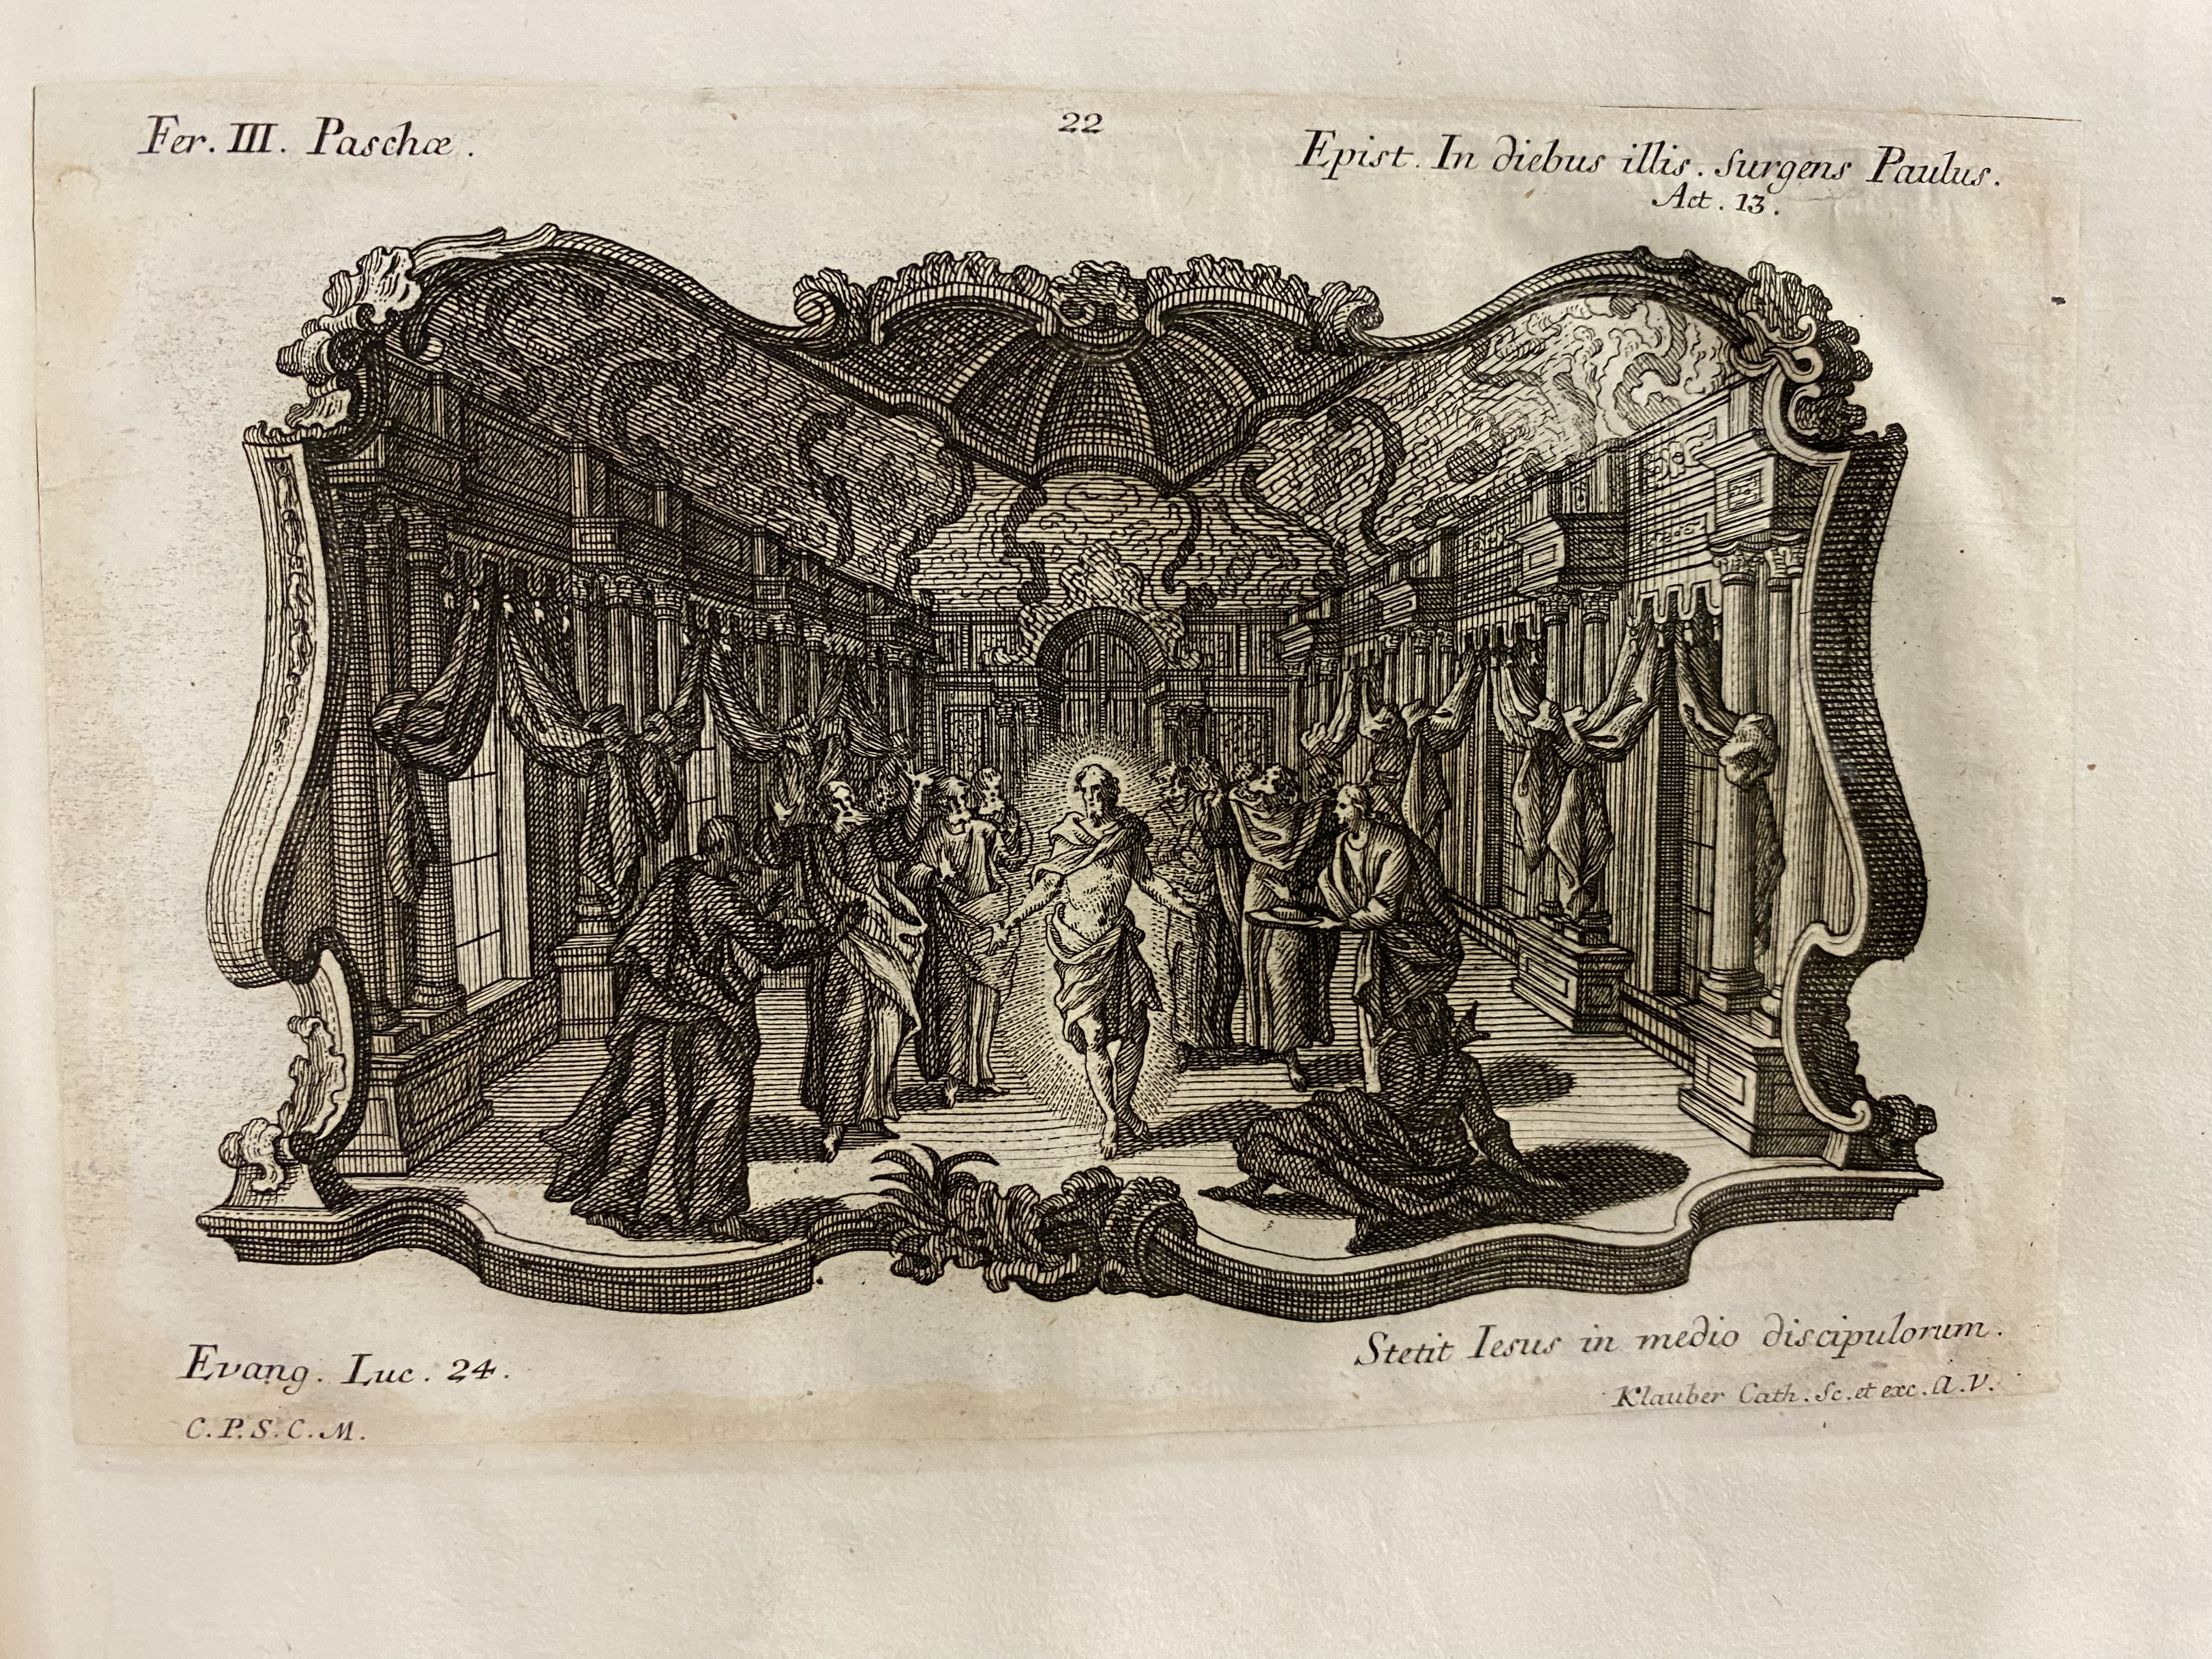 Fer. III. Paschæ.
22
Epist. In diebus illis. surgens Paulus.
Act. 13.
Evang. Luc. 24.
Stetit Iesus in medio discipulorum.
C.P.S.C.M.
Klauber Cath. Sc. et exc. A.V.